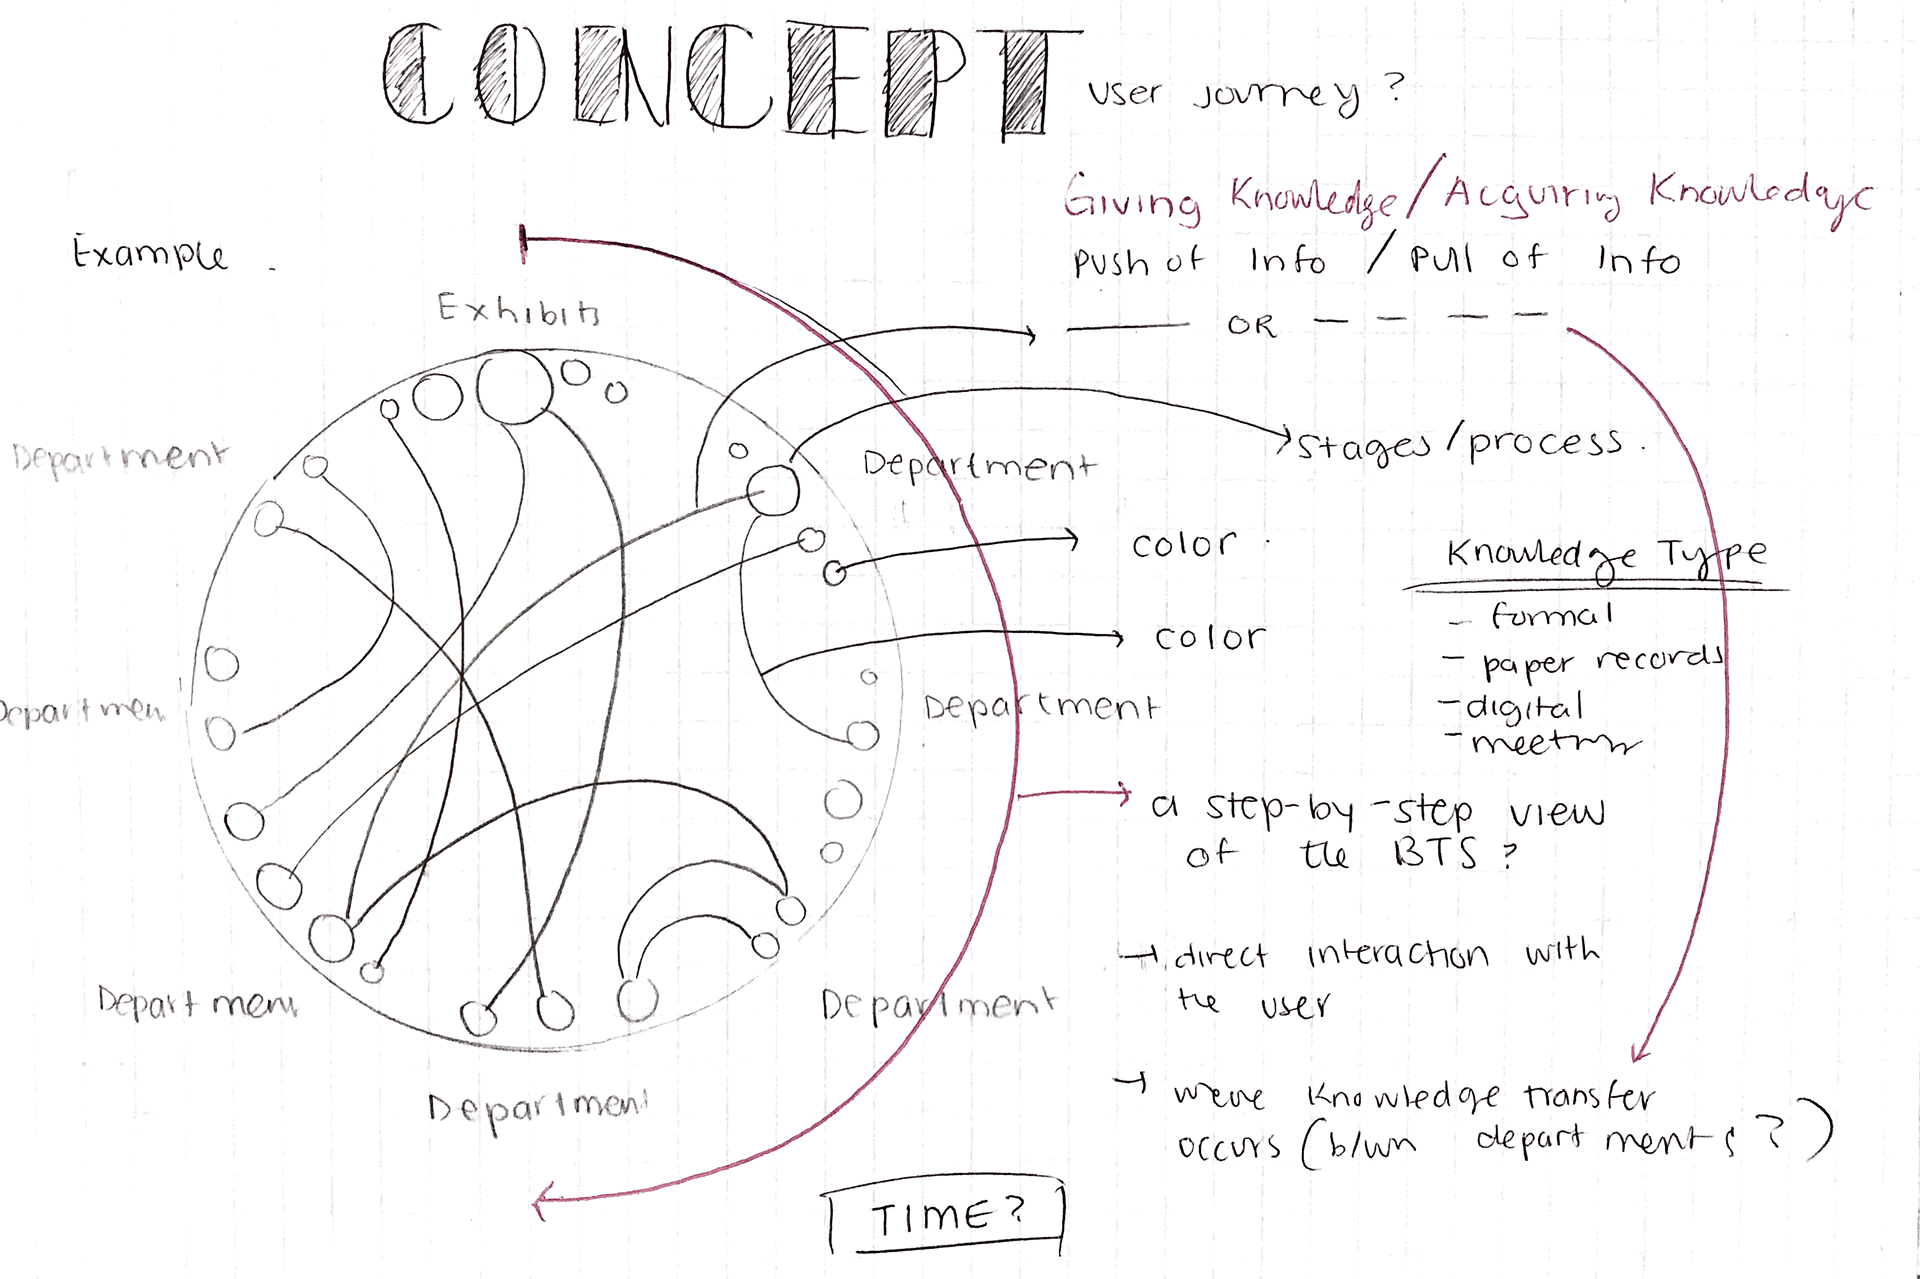 CONCEPT
User journey?
Giving Knowledge / Acquiring Knowledge
Push of Info / Pull of Info
OR
Example.
Exhibits
Department
Department
stages/process.
color.
color
Knowledge Type
- formal
- paper records
- digital
Department
Department
a step-by-step view
of the BTS?
→ direct interaction with
the user
Department
Department
→ were knowledge transfer
occurs (b/wn departments?)
Department
TIME?